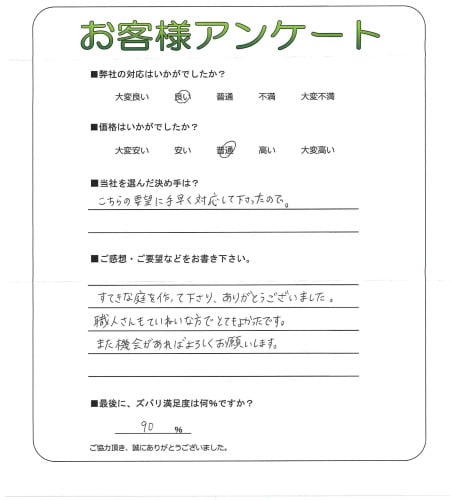 お客様アンケート
■弊社の対応はいかがでしたか？
大変良い 良い 普通 不満 大変不満
■価格はいかがでしたか？
大変安い 安い 普通 高い 大変高い
■当社を選んだ決め手は？
こちらの要望に手早く対応して下さったので。
■ご感想・ご要望などをお書き下さい。
すてきな庭を作って下さり、ありがとうございました。
職人さんもていねいな方でとてもよかったです。
また機会があればよろしくお願いします。
■最後に、ズバリ満足度は何％ですか？
90 ％
ご協力頂き、誠にありがとうございました。